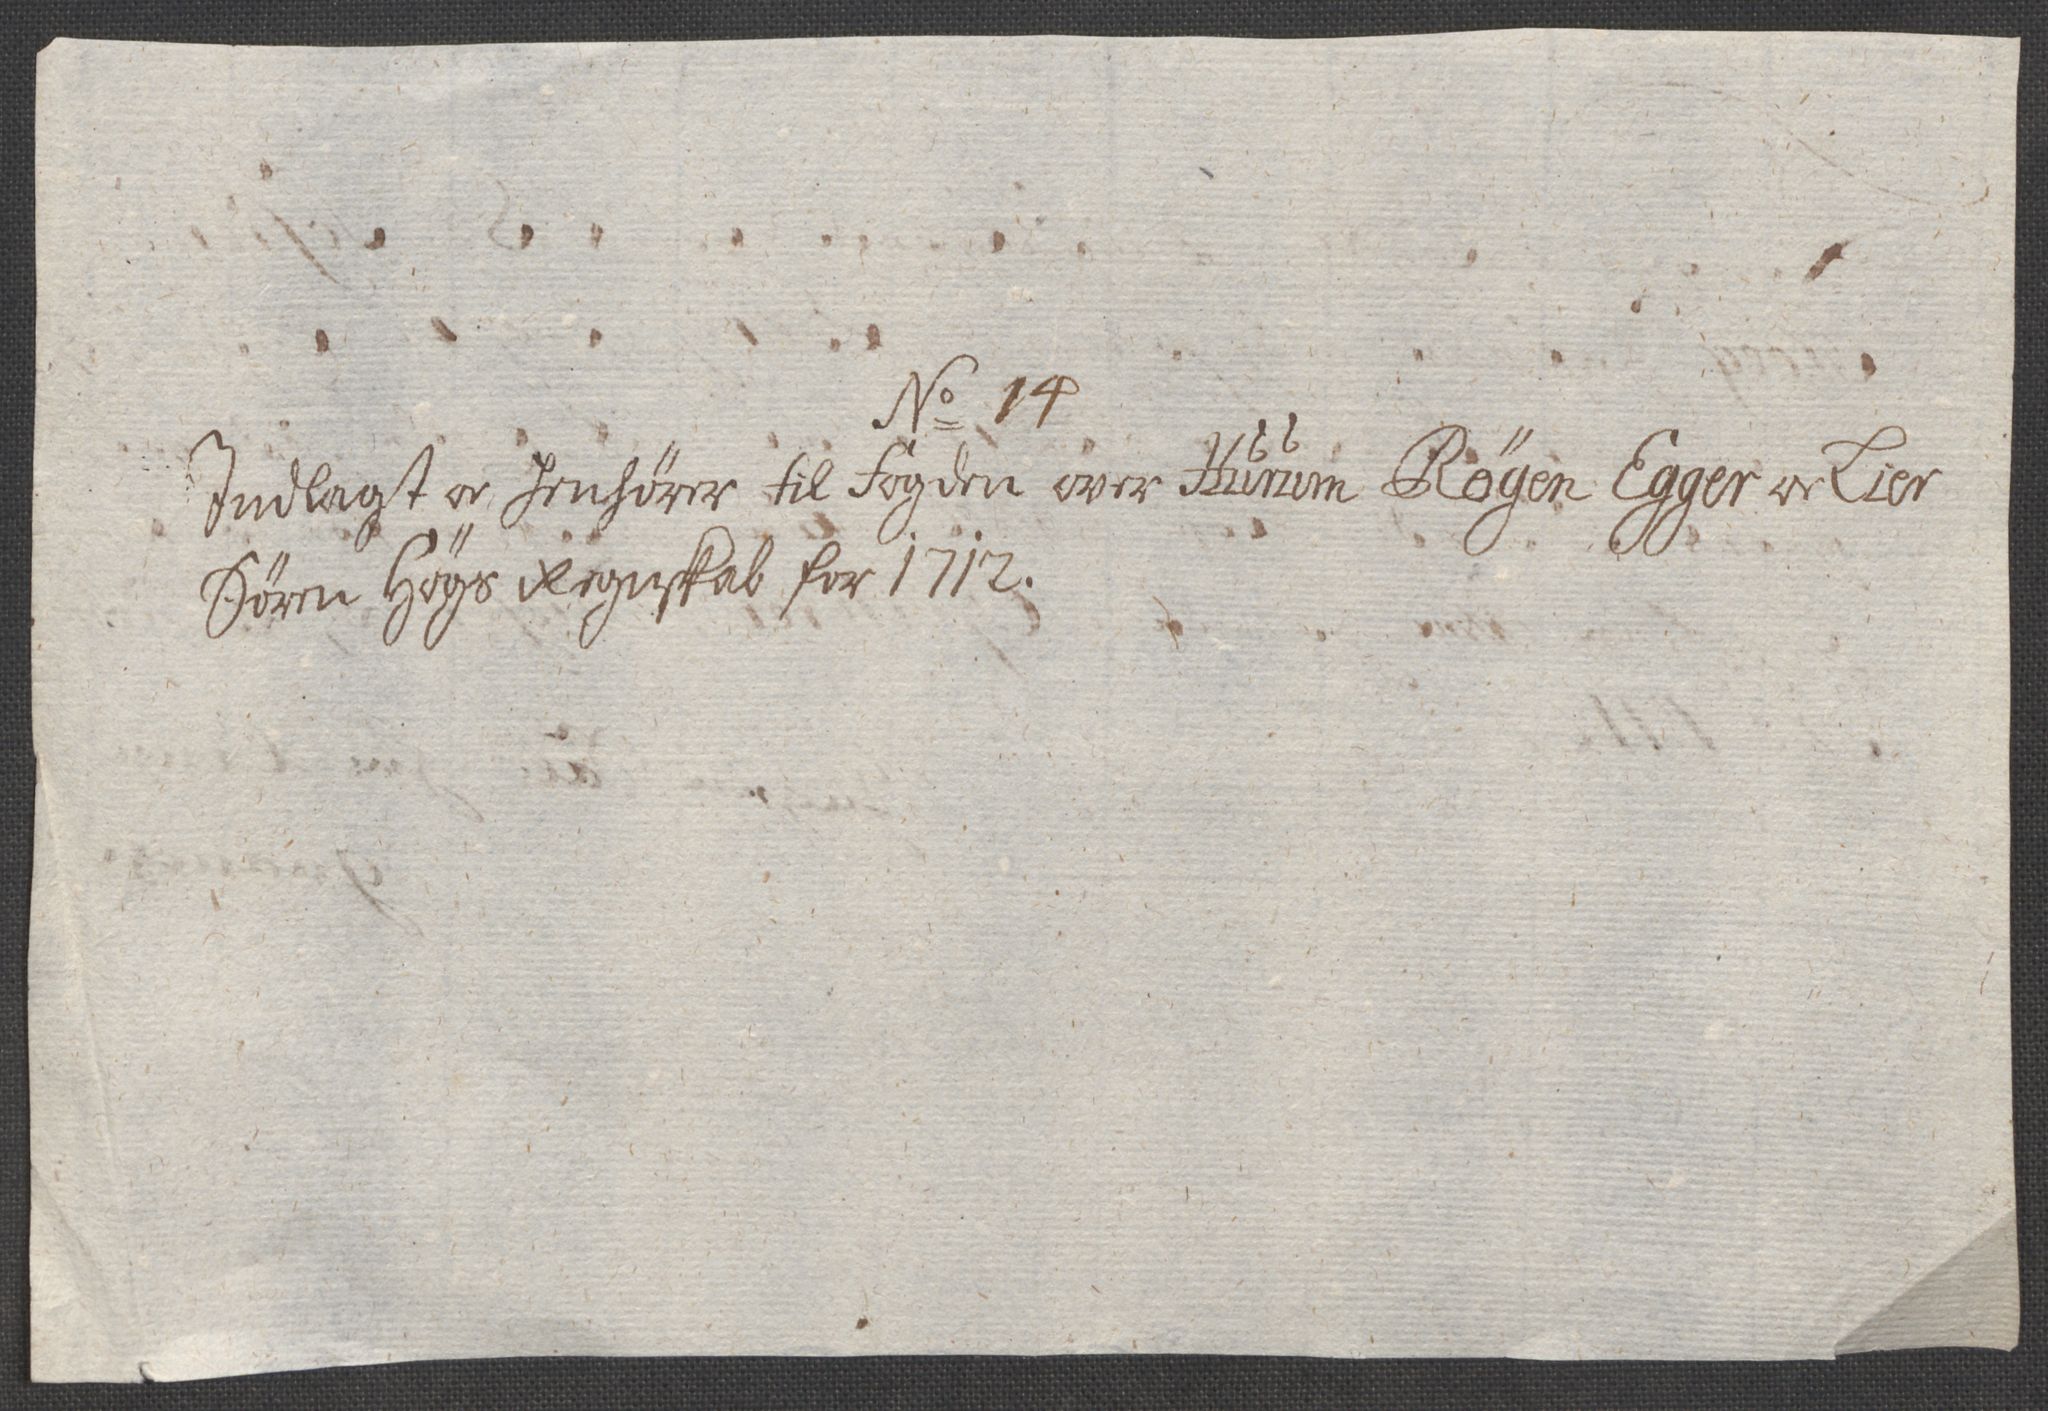 No 14
Indlagt oc henhörer til Fogden over Hürum Röÿen Egger oc Lier
Sören Högs Regnskab for 1712.